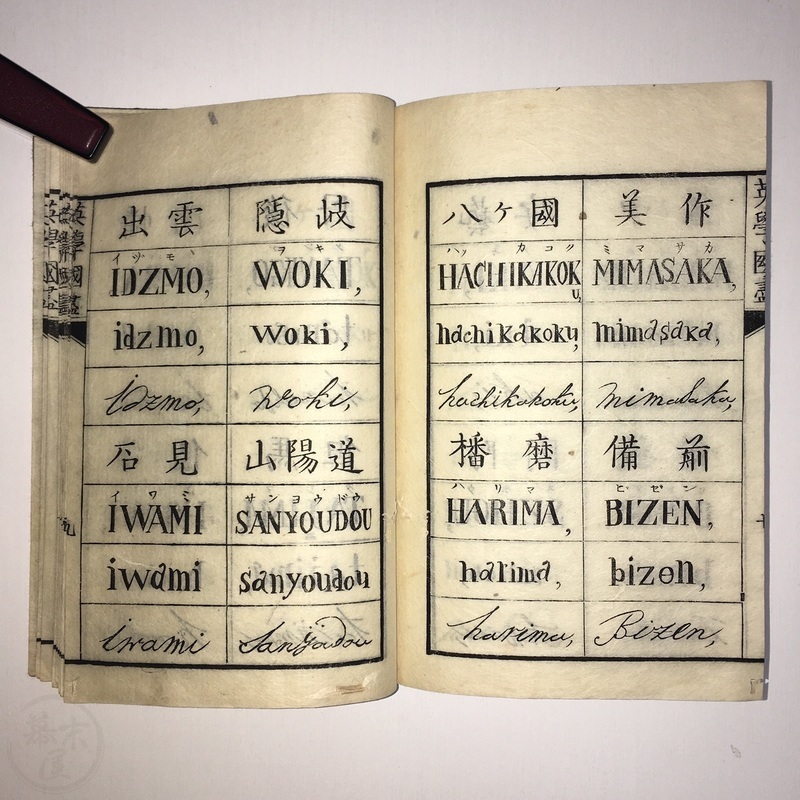 出雲
イヅモ
IDZMO,
idzmo,
idzmo,
隱岐
ヲキ
WOKI,
woki,
woki,
石見
イワミ
IWAMI
iwami
iwami
山陽道
サンヨウドウ
SANYOUDOU
sanyoudou
Sanyoudou
八ヶ國
ハツカコク
HACHIKAKOKU,
hachikakoku,
hachikakoku,
美作
ミマサカ
MIMASAKA,
mimasaka,
mimasaka,
播磨
ハリマ
HARIMA,
harima,
harima,
備前
ビゼン
BIZEN,
bizen,
Bizen,
英學國盡
九
英學國盡